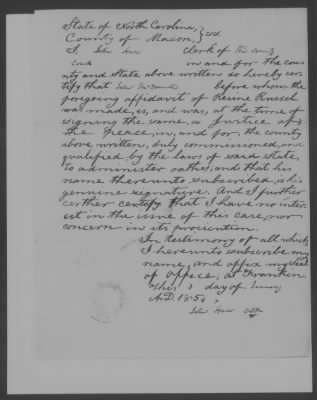 State of North Carolina,
County of Macon,
I, John Clerk of the County
Court in and for the coun
ty and State above written do hereby cer
tify that John before whom the
foregoing affidavit of
was made, is, and was, at the time of
signing the same, a Justice of
the peace, in, and for, the county
above written, duly commissioned, and
qualified by the law of said State,
to administer oaths; and that his
name thereunto subscribed, is his
genuine signature. And I further
certify that I have no inter
est in the issue of this case, nor
concern in its prosecution.
In testimony of all which
I hereunto subscribe my
name, and affix my Seal
of Office, at Franklin
This 3 day of January
A.D. 185
John